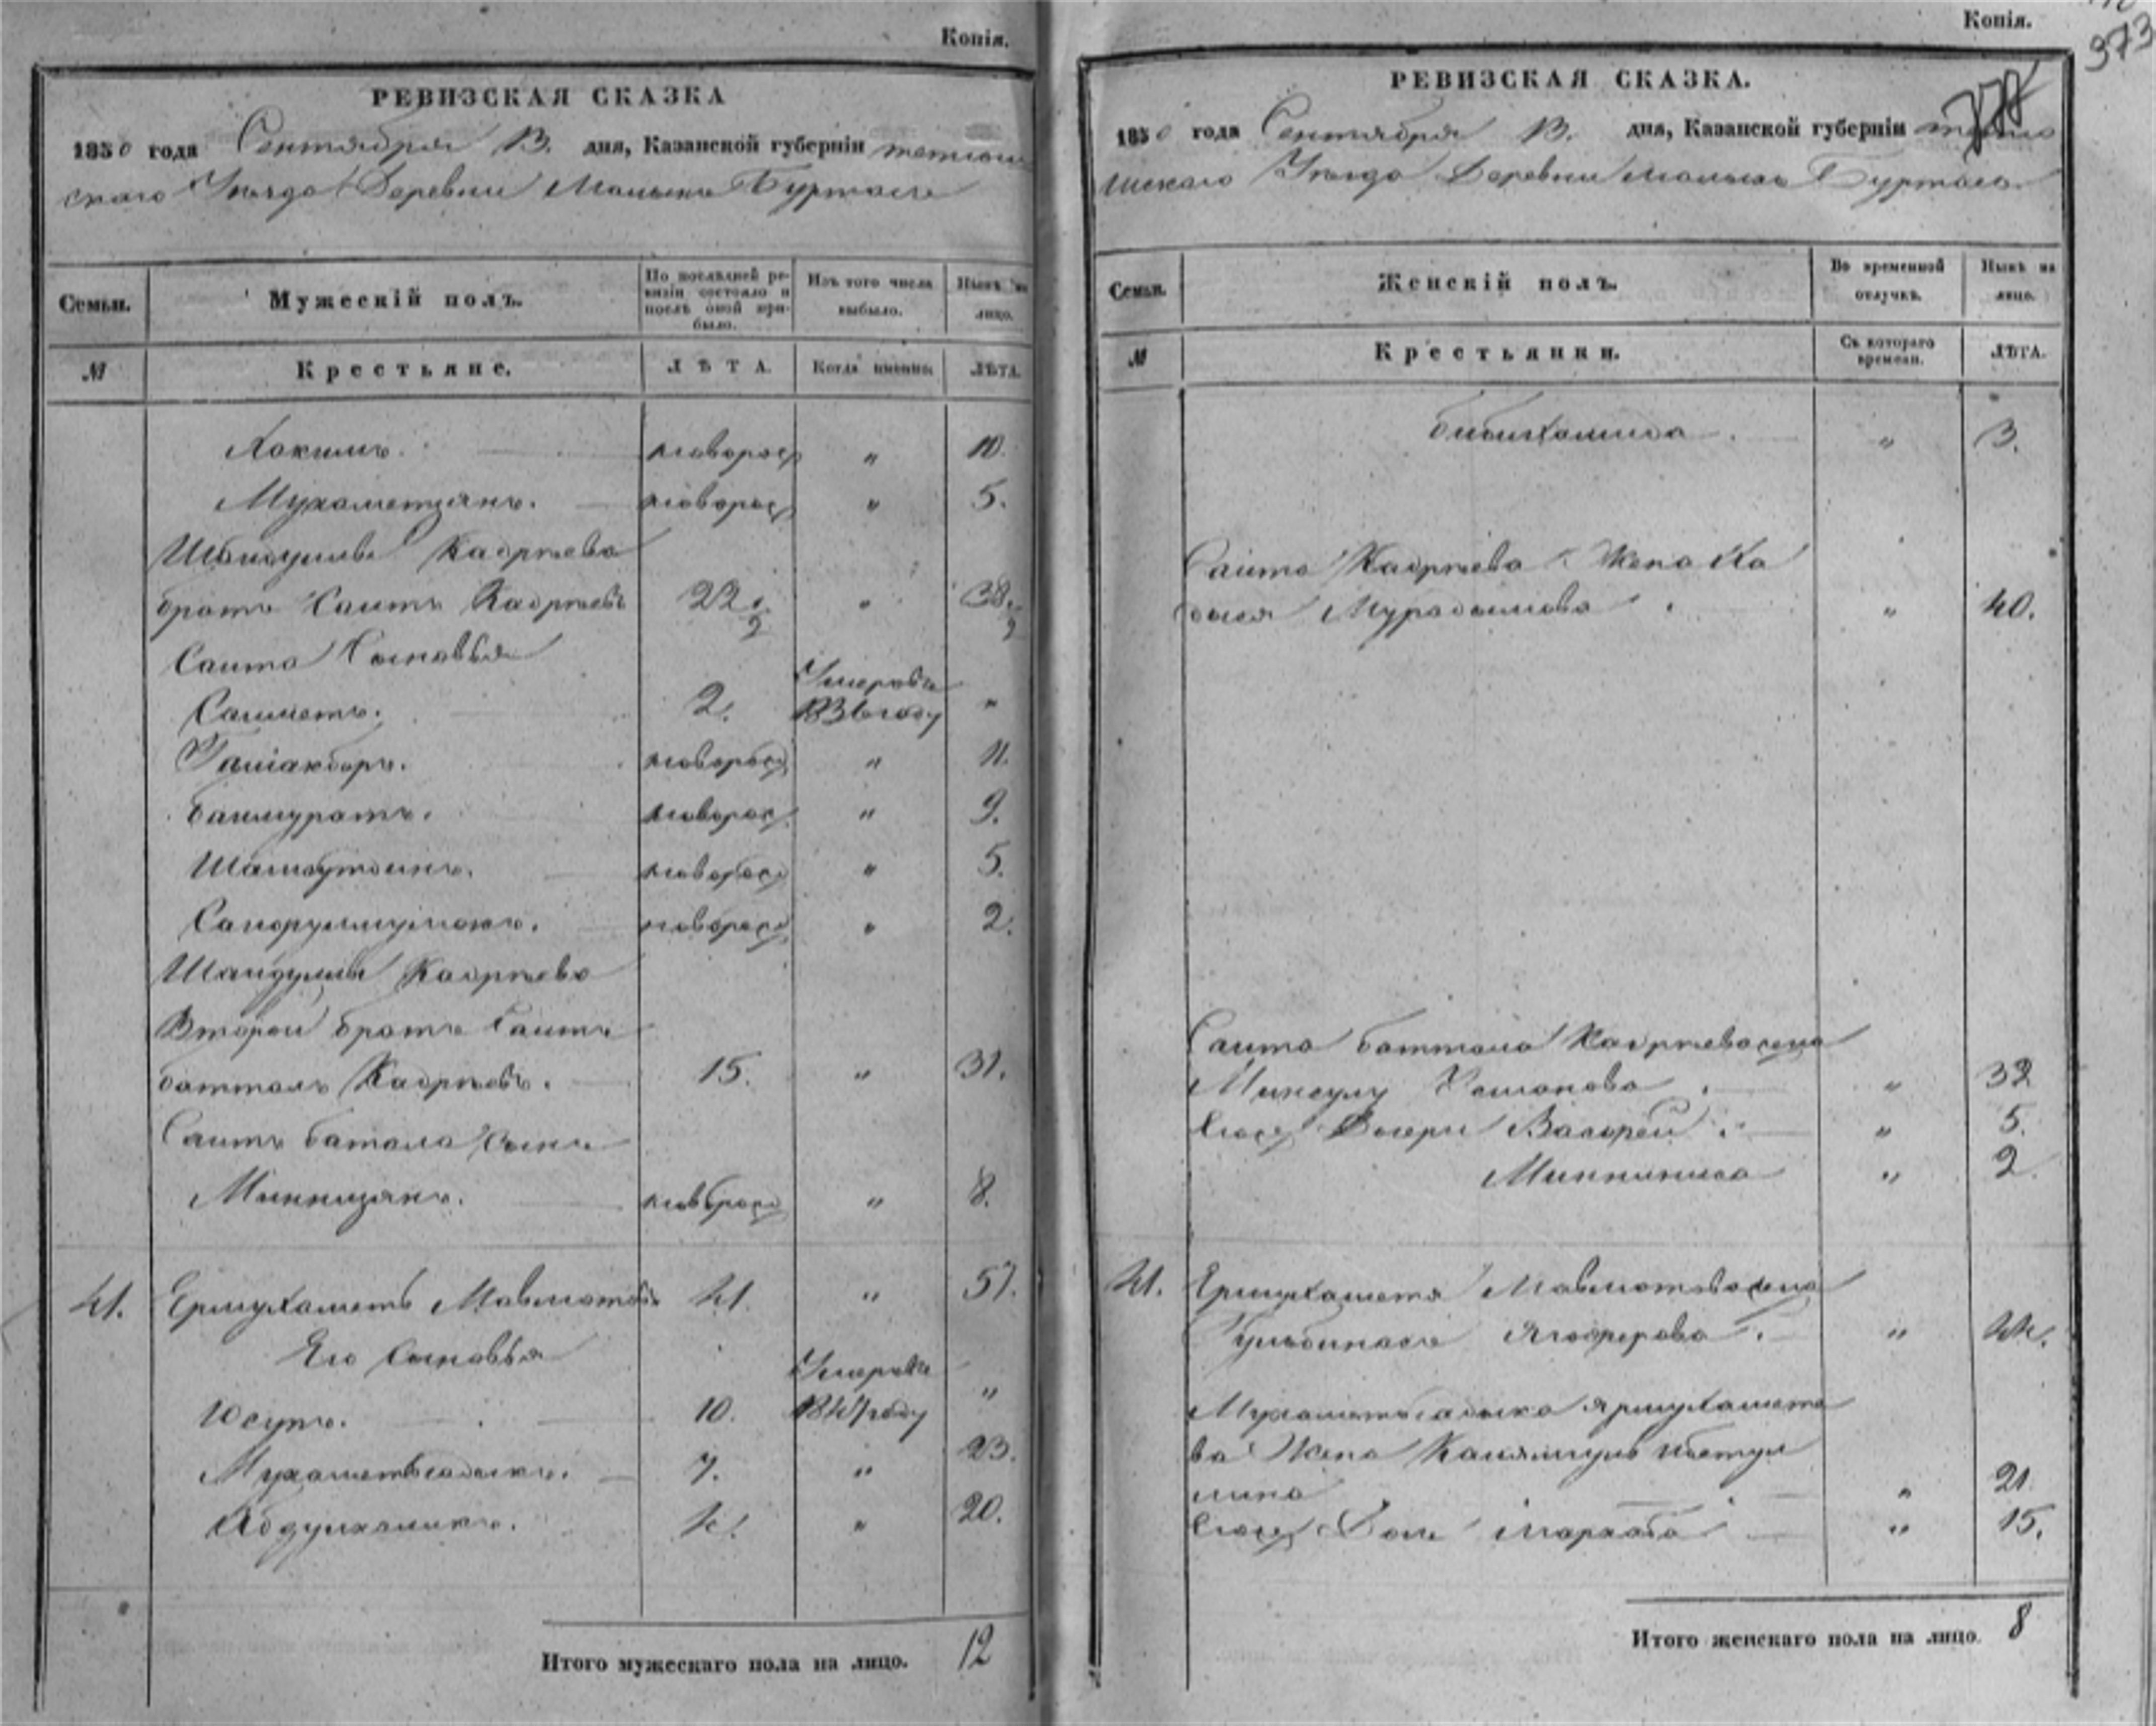 Копія.
РЕВИЗСКАЯ СКАЗКА
1850 года Сентября 13. дня, Казанской губерніи тетюш
скаго Уезда Деревни Малыхъ Буртасъ
Семьи.
Мужескій полъ.
По послѣдней ре-
визіи состояло и
послѣ оной при-
было.
Изъ того числа
выбыло.
Нынѣ на
лицо.
№
Крестьяне.
ЛѢТА.
Когда именно.
ЛѢТА.
Хакимъ. новорож " 10.
Мухаметзянъ. новорож " 5.
Кадріева
братъ Саитъ Кадріевъ 22 1/2 " 38 1/2
Саита Сыновья
Саиметъ. 2. Умеръ въ 1836 году "
Галіакбаръ. новорож " 11.
Баимуратъ. новорож " 9.
новорож " 5.
новорож " 2.
Кадріева
Второй братъ Саитъ
батталъ Кадріевъ. 15. " 31.
Саитъ батала Сынъ
Миннизянъ. новорож " 8.
41. Ермухаметъ Мавлютовъ 41. " 57.
Его Сыновья
Юсупъ. 10. Умеръ въ 1841 году "
Мухаметьсадыкъ. 7. " 23.
Абдулхаликъ. 4. " 20.
Итого мужескаго пола на лицо. 12
Копія.
373
РЕВИЗСКАЯ СКАЗКА.
1850 года Сентября 13. дня, Казанской губерніи тетю
шскаго Уезда Деревни Малыхъ Буртасъ
Семьи.
Женскій полъ.
Во временной
отлучкѣ.
Нынѣ на
лицо.
№
Крестьянки.
Съ котораго
времени.
ЛѢТА.
Бибихамида. " 3.
Саита Кадріева Жена Ка
Мурадымова. " 40.
Саита баттала Кадріева жена
Минсулу Усманова. " 32
Дочери " 5.
" 2
41. Ермухаметя Мавлютова жена
" 44.
Мухаметьсадыка Ярмухамето
ва Жена
лина " 21.
" 15.
Итого женскаго пола на лицо. 8